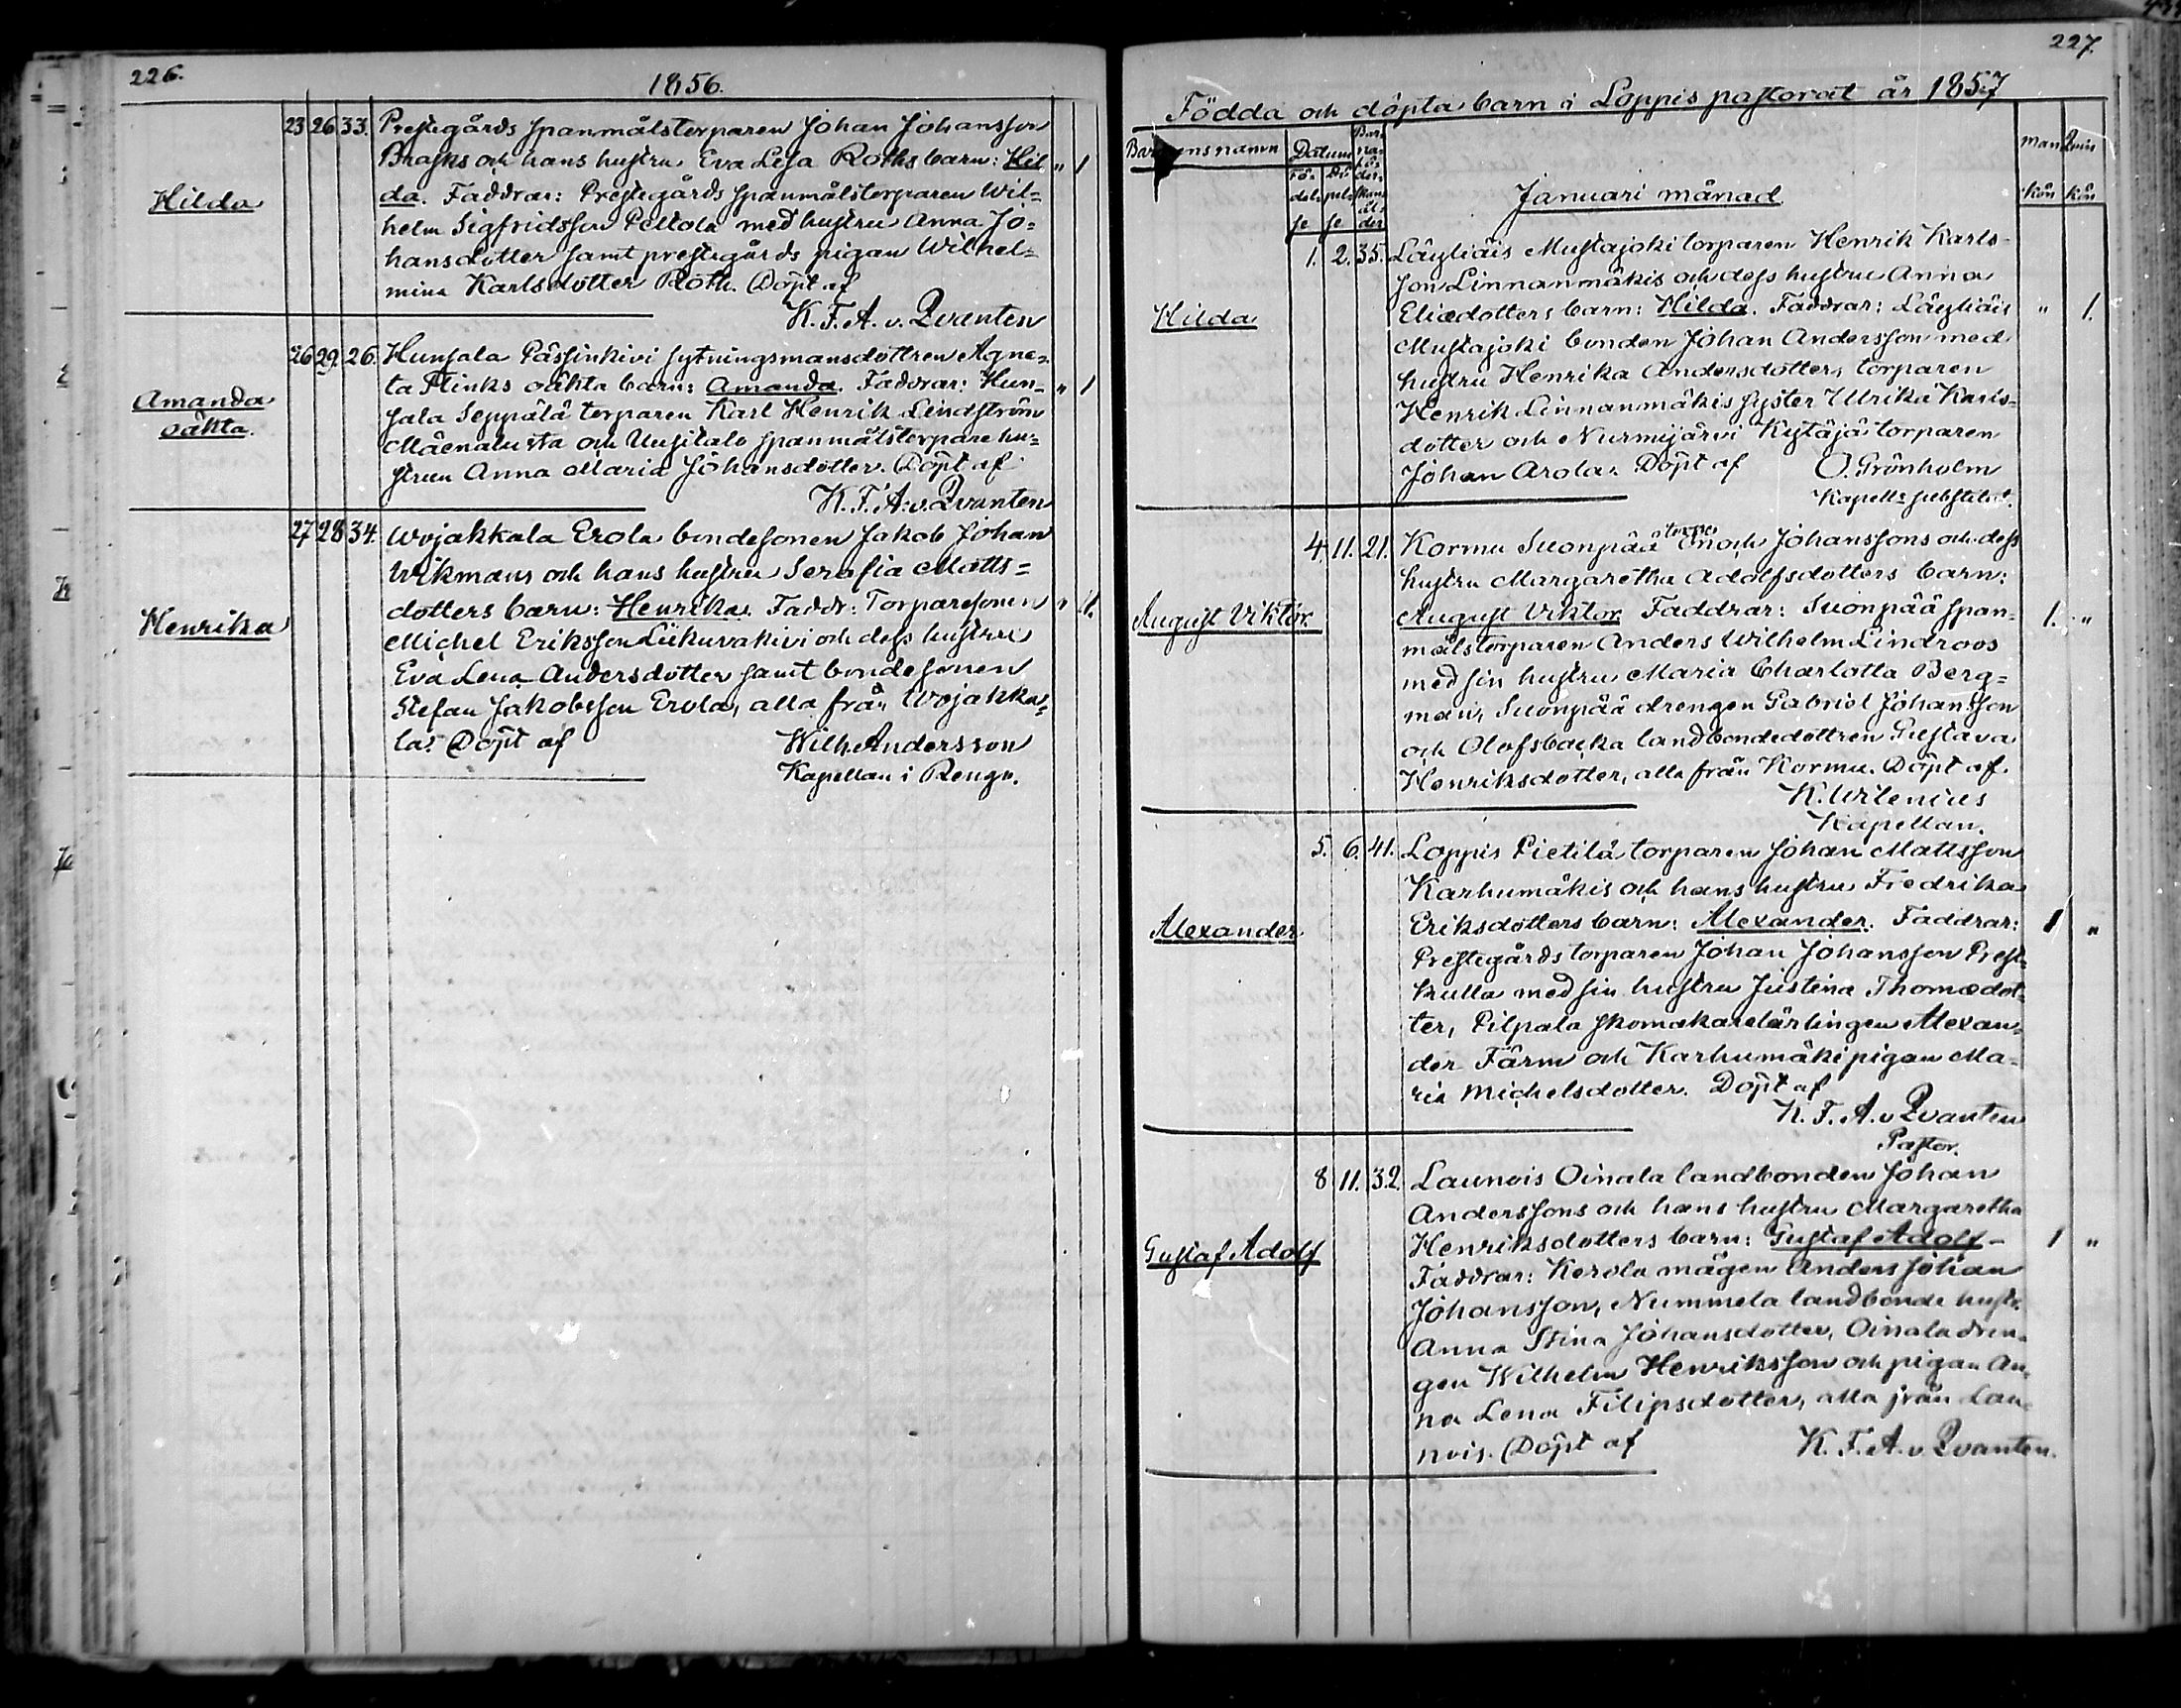 226.
1856.
23 26 33. Prestegårds spanmålstorparen Johan Johansson
Brasks och hans hustru Eva Lisa Roths barn: Hil " 1
Hilda
da. Faddrar: Prestegårds spanmålstorparen Wil=
helm Sigfridsson Peltola med hustru Anna Jo=
hansdotter samt prestegårds pigan Wilhel=
mina Karlsdotter Roth. Döpt af
K. F. A. v. Qvanten
26 29. 26. Hunsala Pässinkivi sytningsmansdottren Agne=
ta Flinks oäkta barn: Amanda. Faddrar: Hun= " 1
Amanda
oäkta.
sala Seppälä torparen Karl Henrik Lindström
Mäenalusta och Uusitalo spanmålstorparehu=
strun Anna Maria Johansdotter. Döpt af
K. F. A. v. Qvanten
27 28 34. Wojakkala Erola bondesonen Jakob Johan
Wikmans och hans hustru Serafia Matts=
dotters barn: Henrika. Faddr: Torparesonen " 1.
Henrika
Michel Eriksson Liikuvakivi och dess hustru
Eva Lena Andersdotter samt bondesonen
Stefan Jakobsson Erola, alla från Wojakka=
la. Döpt af Wilh. Andersson
Kapellan i Rengo.
227.
Födda och döpta barn i Loppis pastorat år 1857
Barnens namn Datum Bar-
na-
fö-
der-
skans
ål-
der
Fö-
del-
se
Dö-
pel-
se
Man
kön
Qvin
kön
Januari månad
1. 2. 35. Läyliäis Mustajoki torparen Henrik Karls-
son Linnanmäkis och dess hustru Anna
Hilda
Eliædotters barn: Hilda. Faddrar: Läyliäis " 1.
Mustajoki bonden Johan Andersson med
hustru Henrika Andersdotter, torparen
Henrik Linnanmäkis syster Ulrika Karls-
dotter och Nurmijärvi Kytäjä torparen
Johan Arola. Döpt af O. Grönholm
Kapells substitut.
4. 11. 21. Kormu Suonpää torp. Enoch Johanssons och dess
hustru Margaretha Adolfsdotters barn:
August Viktor.
August Viktor Faddrar: Suonpää span- 1. "
målstorparen Anders Wilhelm Lindroos
med sin hustru Maria Charlotta Berg=
man, Suonpää drengen Gabriel Johansson
och Olofsbacka landbondedottren Gustava
Henriksdotter, alla från Kormu. Döpt af
K. Wilenius
Kapellan.
5. 6. 41. Loppis Pietilä torparen Johan Mattsson
Karhumäkis och hans hustru Fredrika
Alexander
Eriksdotters barn: Alexander. Faddrar: 1 "
Prestegårds torparen Johan Johansson Prest-
kulla med sin hustru Justina Thomædot-
ter, Pilpala skomakarelärlingen Alexan-
der Färm och Karhumäki pigan Ma-
ria Michelsdotter. Döpt af
K. F. A. v Qvanten
Pastor.
8 11. 32. Launois Oinala landbonden Johan
Anderssons och hans hustru Margaretha
Gustaf Adolf
Henriksdotters barn: Gustaf Adolf – 1 "
Faddrar: Kerola mågen Anders Johan
Johansson, Nummela landbonde hustr.
Anna Stina Johansdotter, Oinala dren-
gen Wilhelm Henriksson och pigan An-
na Lena Filipsdotter, alla från Lau-
nois. Döpt af K. F. A. v. Qvanten.